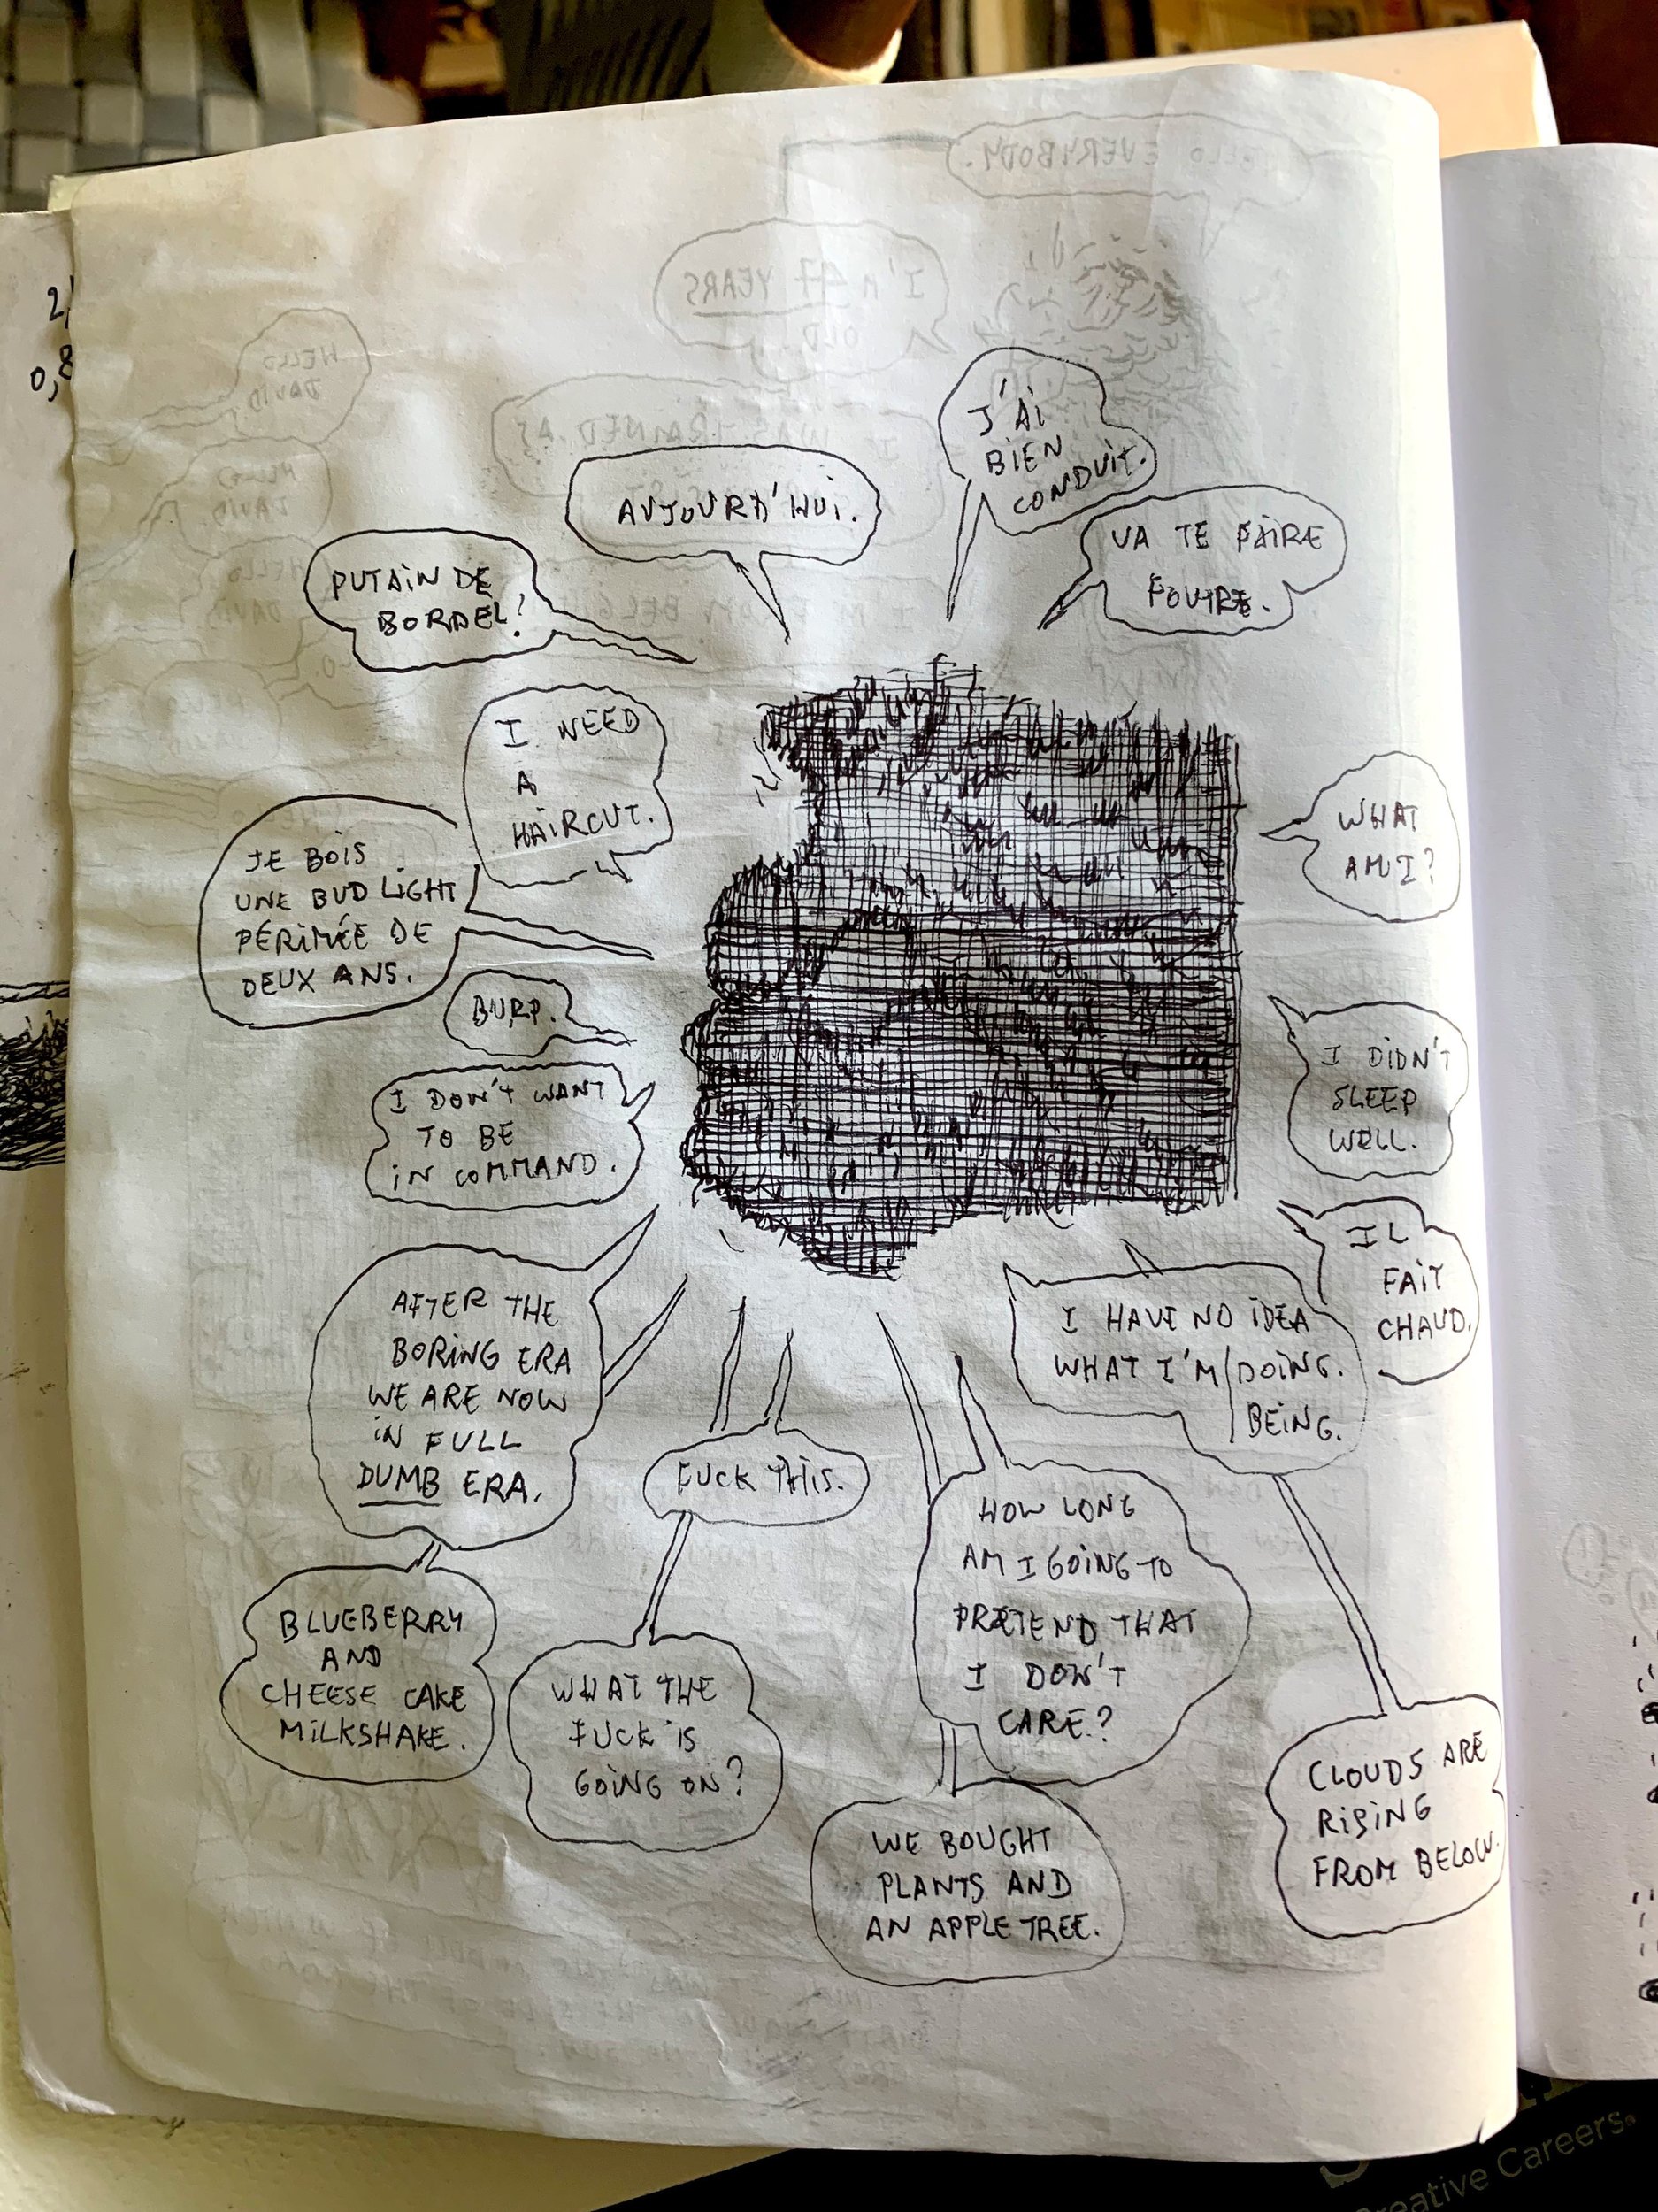 HELLO EVERYBODY.
I'M 47 YEARS
OLD.
HELLO
DAVID
J'Ai
BIEN
CONDUiT.
AUJOURD'HUi.
VA TE FAiRE
FOUTRE.
PUTAiN DE
BORDEL!
I NEED
A
HAiRCUT.
JE BOiS
UNE BUD LiGHT
PÉRiMÉE DE
DEUX ANS.
BURP.
I DON'T WANT
TO BE
iN COMMAND.
WHAT
AM I?
I DiDN'T
SLEEP
WELL.
IL
FAiT
CHAUD.
I HAVE NO iDEA
WHAT I'M/DOiNG.
BEiNG.
AFTER THE
BORiNG ERA
WE ARE NOW
iN FULL
DUMB ERA.
FUCK THiS.
HOW LONG
AM I GOiNG TO
PRETEND THAT
I DON'T
CARE?
BLUEBERRY
AND
CHEESE CAKE
MiLKSHAKE.
WHAT THE
FUCK iS
GOiNG ON?
WE BOUGHT
PLANTS AND
AN APPLE TREE.
CLOUDS ARE
RiSiNG
FROM BELOW.
Creative Careers